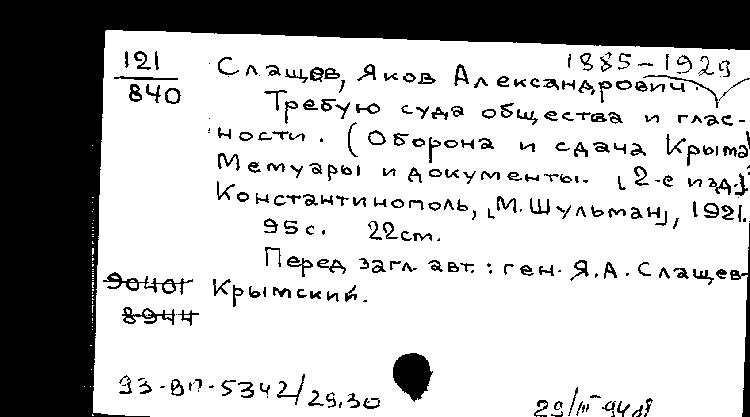 1885-1929
121
840
Слащев, Яков Александрович.
Требую суда общества и глас-
ности. (Оборона и сдача Крыма)
Мемуары и документы. [2-е изд.]
Константинополь, [М. Шульман], 1921.
95 с. 22 см.
Перед загл. авт.: ген. Я. А. Слащев-
Крымский.
90401
8944
93-ВП-5342/29.30
29/III-94